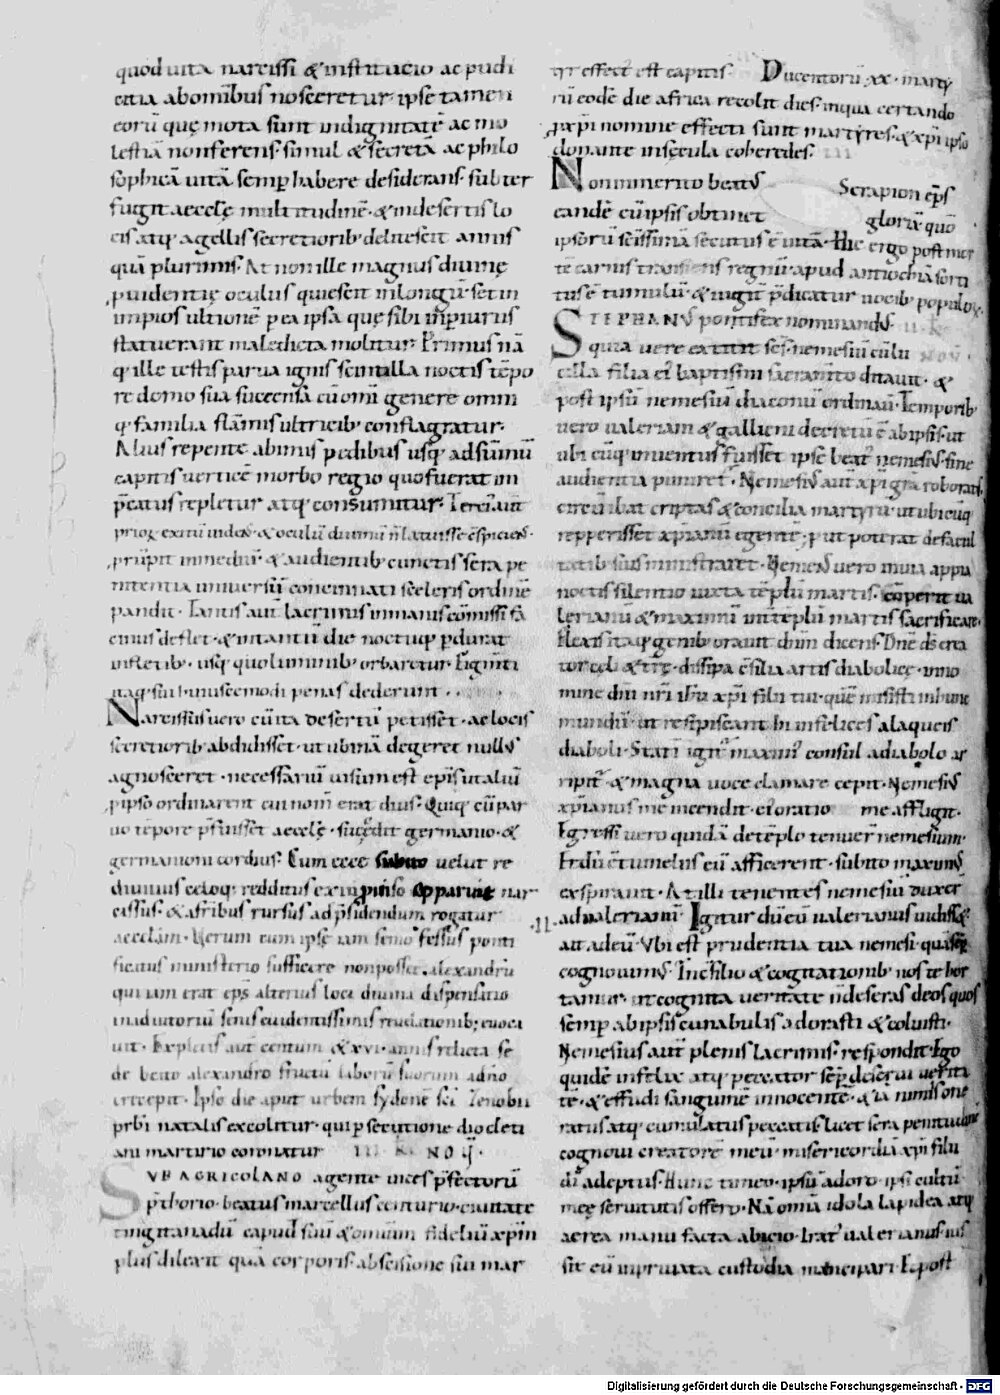 quod uita narcissi & institucio ac pudi
citia abominibus nosceretur. ipse tamen
eorū quę mota sunt indignitatē ac mo
lestiā nonferens. simul & secretā ac philo
sophicā uitā semp habere desiderans. subter
fugit aecclę multitudinē. & indesertis lo
cis atq; agellis secretiorib; delitescit annis
quā plurimis. At non ille magnus diuinę
puidentię oculus quiescit inlongū. set in
impios ultionē p ea ipsa quę sibi inpiurus
statuerant maledicta molitur. Primus nā
q; ille testis parua ignis scintilla noctis tēpo
re domo sua succensa cū omi genere omni
q; familia flāmis ultricib; conflagratur.
Alius repente abimis pedibus usq; adsūmū
capitis uerticē morbo regio quo fuerat im
p̄catus repletur atq; consumitur. Terci' aut̄
prior exitū uidens & oculū diuinū n̄ latuisse cspiciens
prūpit inmediū. & audientib; cunctis sera pe
nitentia uniuersū concinnati sceleris ordinē
pandit. Tantis aut̄ lacrimis inmanis cōmissi fa
cinus deflet. & intantū die noctuq; pdurat
infletib; usq; quo luminib; orbaretur. Et igni ti
itaq; sui huiuscemodi penas dederunt.
Narcissus uero cū ita desertū petisset. ac locis
secretiorib; abdidisset. ut ubinā degeret nullus
agnosceret. necessariū uisum est epis uitaliū
pipso ordinarent cui nom̄ erat dius. Quiq; cū par
uo tēpore p̄fuisset aecclę. succedit germanio. &
germanioni cordius. Cum ecce subito uelut re
diuiuus celoq; redditus ex inpuiso apparuit nar
cissus. & afribus rursus ad p̄sidendum rogatur
aecclam. Uerum cum ipse iam senio fessus ponti
ficatus ministerio sufficere nonposset. alexandrū
qui iam erat ep̄s alterius loci diuina dispensatio
inadiutoriū senis euidentissimis reuelationib; euoca
uit. Expletis aut̄ centum & xvi. annis relicta se
de beato alexandro fructū laborū suorum adn̄o
accepit. Ipso die aput urbem sydonē sc̄i Zenobii
prb̄i natalis excolitur. qui psecutione diocleti
ani martirio coronatur III. K. NOV.
SVB AGRICOLANO agente uices p̄fectorū
p̄torio. beatus marcellus centurio. ciuitate
tingitanadū capud suū & omnium fideliū xp̄in
plus dilexit quā corporis. abscisione sui mar
tyr effect' est capitis. Ducentorū xx. marty
rū eodē die africa recolit dies. inqua certando
p xp̄i nomine effecti sunt martyres. & xp̄i ipso
donante inscęula coheredes. III
Non inmerito beatus Serapion ep̄s
eandē cū ipsis obtinet gloriā quo
ipsorū sc̄issimā secutus ē uitā. Hic ergo post mor
tē carnis transiens regnū. apud antiochiā sorti
tus ē tumulū. & iugit̄ p̄dicatur uocib; populo.
STEPHANUS pontifex nominandus. II. K.
quia uere extitit sc̄s. nemesiū cū lu NOV.
cilla filia ei' baptismi sacram̄to ditauit. &
post ipsū nemesiū diaconū ordinauit. Temporib;
uero ualeriani & gallieni decretū ē abipsis. ut
ubi cūq; inuentus fuisset ipse beat' nemesius. sine
audientia puniret'. Nemesius aut̄ xp̄i gra roboratus.
circuibat criptas & concilia martyrū. ut ubicūq;
repperisset xp̄ianū egentē; p ut poterat defacul
tatib; suis ministraret. Nemesius uero inuia appia
noctis silentio iuxta tēplū martis. cōperit ua
lerianū & maximū intēplū martis sacrificare.
Flexis itaq; genib; orauit dn̄m dicens. Dn̄e d̄s crea
tor cęli & terrę. dissipa c̄silia artis diabolicę. inno
mine dn̄i nr̄i ihū xp̄i filii tui. quē misisti inhunc
mundū. ut respiscant hi infelices alaqueis
diaboli. Statī igit' maxim' consul adiabolo ar
ripit' & magna uoce clamare cepit. Nemesius
xp̄ianus me incendit. ei' oratio me affligit.
Egressi uero quidā detēplo tenuer̄ nemesium.
Et dū c̄tumeliis eū afficerent. subito maximus
exspirauit. At illi tenentes nemesiū duxer̄
ad ualerianū. Igitur dū eū ualerianus uidisset.
ait adeū. Ubi est prudentia tua nemesi. quā semp
cognouimus. Inc̄silio & cognationib; nos te hor
tamur. ut cognita ueritate n̄ deseras deos quos
semp abipsis cunabulis adorasti & coluisti.
Nemesius aut̄ plenis lacrimis. respondit. Ego
quidē infelix atq; peccator semp deserui uerita
tē. & effudi sanguinē innocentē. & ia nimis one
ratus atq; cumulatus peccatis. licet sera penitudine
cognoui creatorē meū. misericordiā xp̄i filii
dī adeptus. Hunc timeo. ipsū adoro. ipsi cultū
meę seruitutis offero. Nā omīa idola lapidea atq;
aerea manu facta abicio. Irat' ualerianus. ius
sit eū inpriuata custodia mancipari. Et post